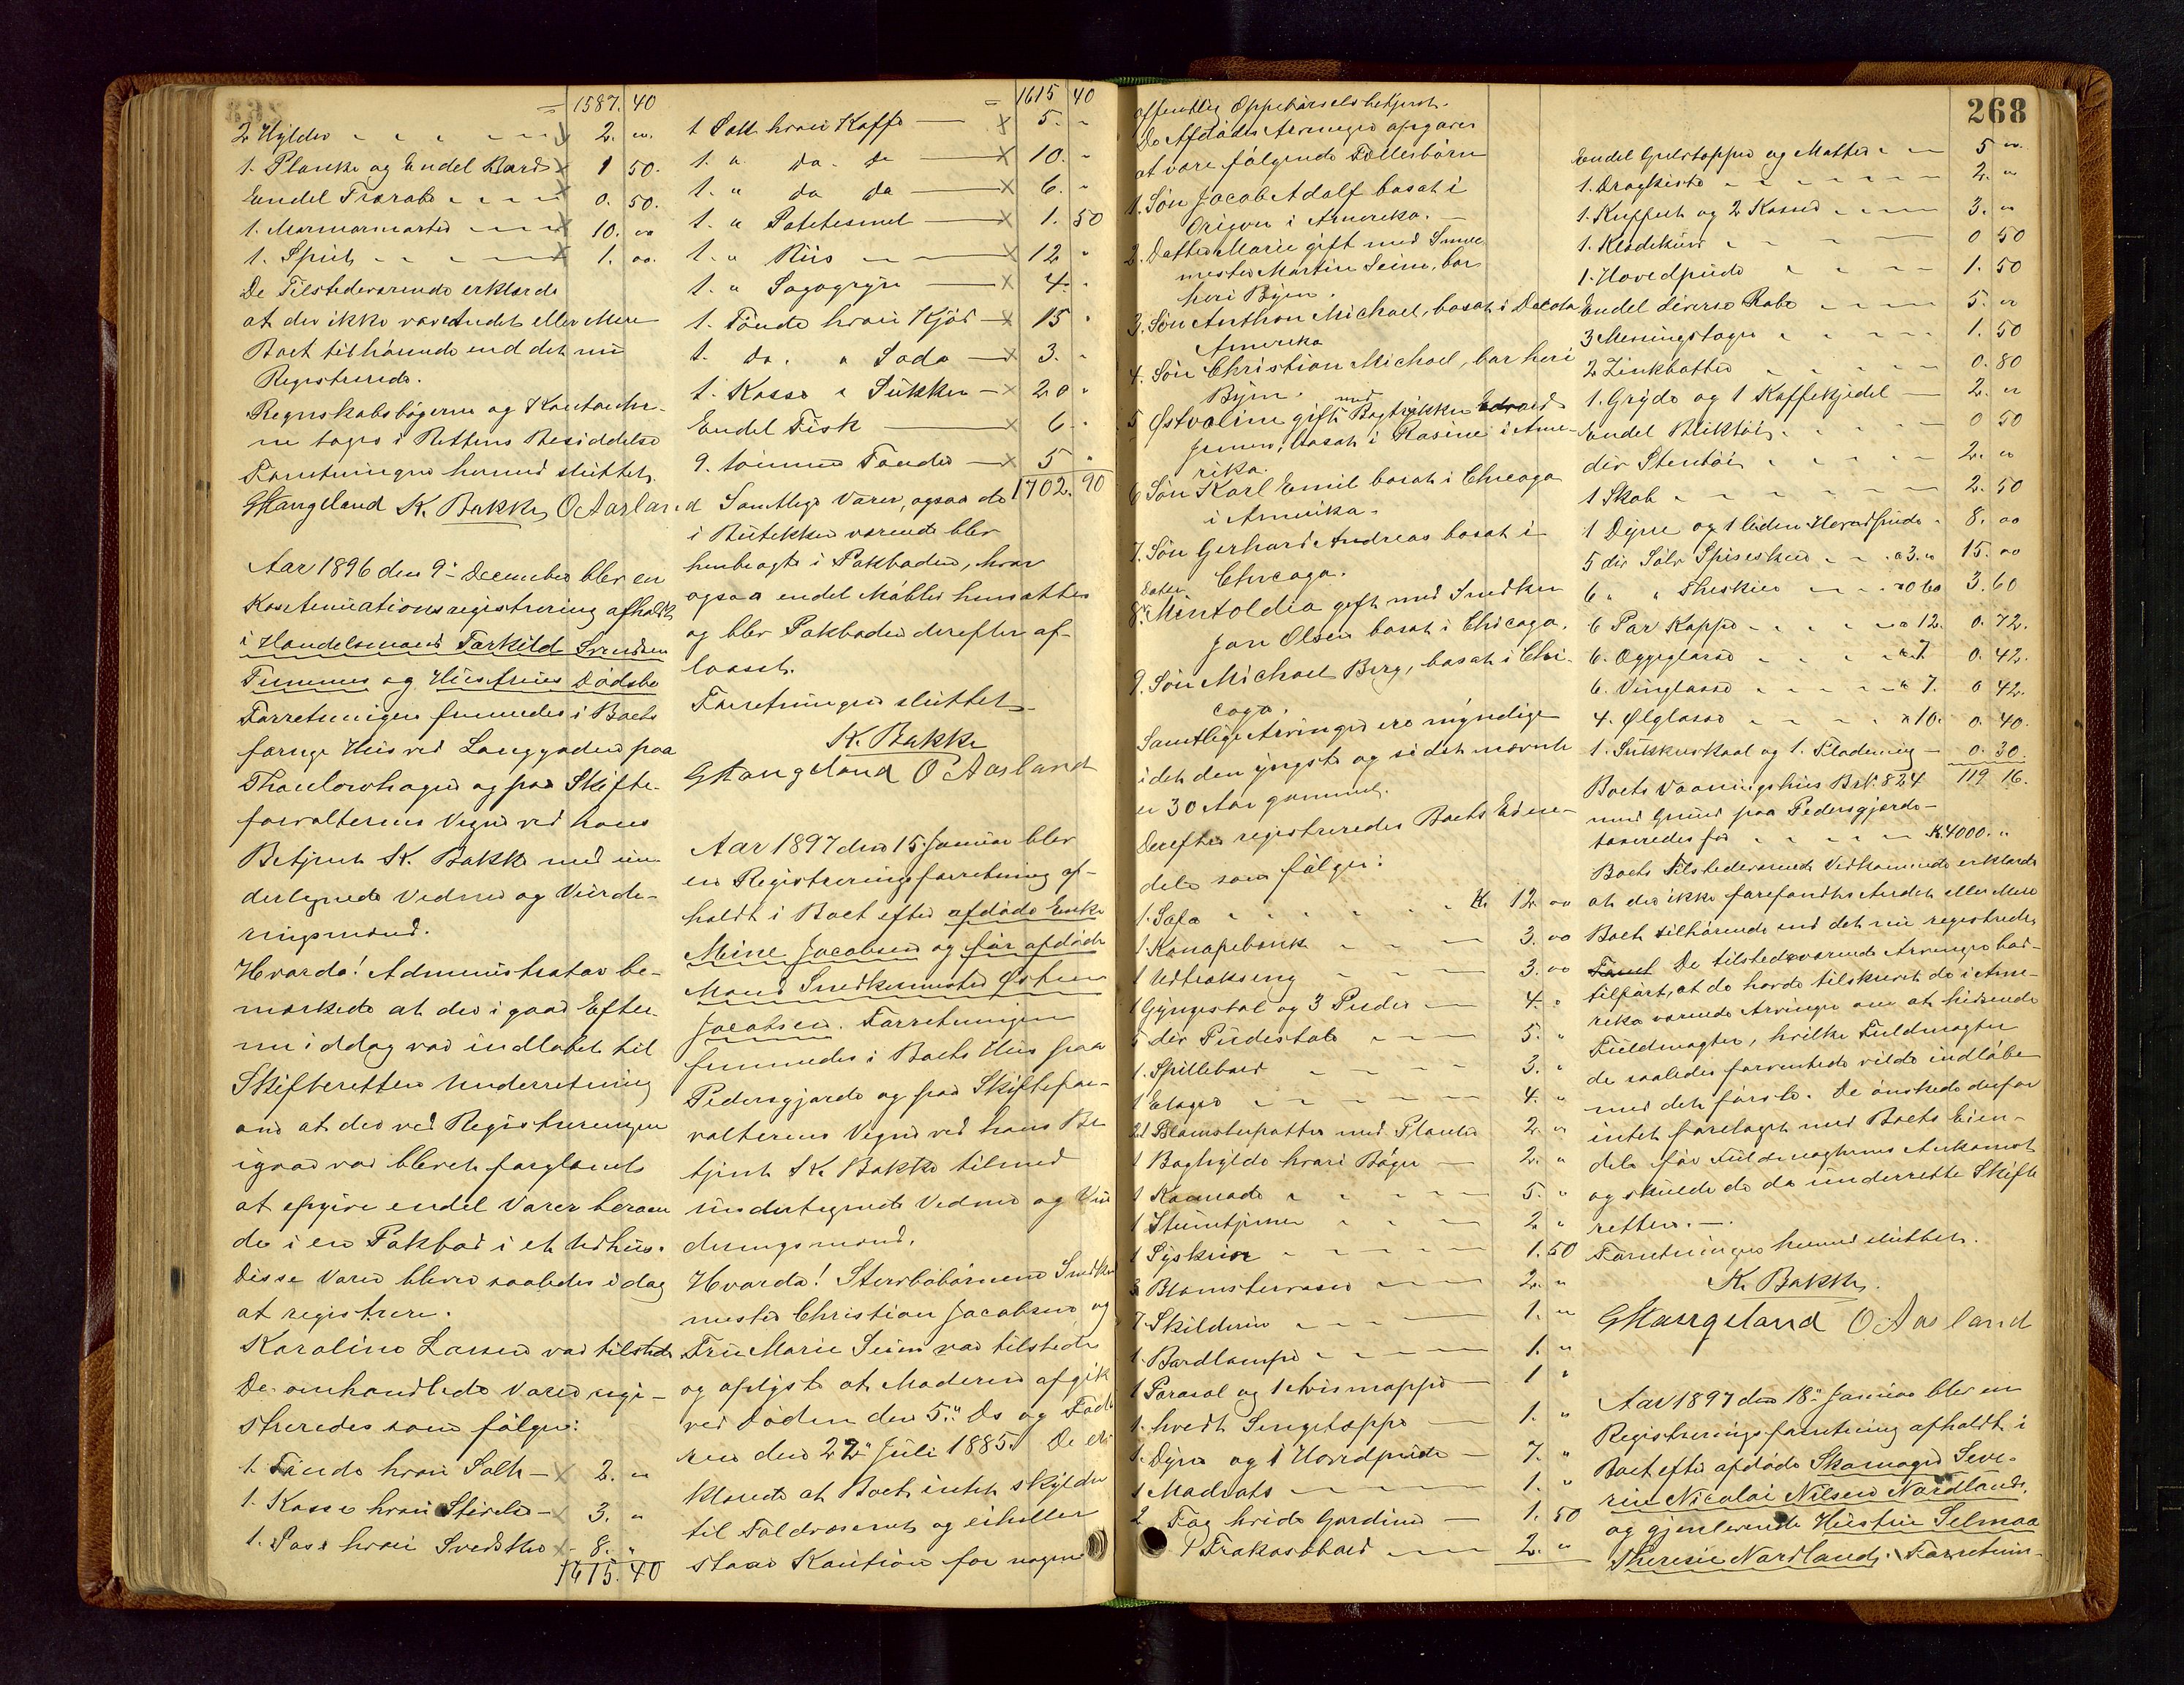 = 1587. 40
2 Hylder - - - - x 2. "
1. Planke og Endel Bord x 1 50.
Endel Trærabe - - - x 0. 50.
1. Marmormorter - - - x 10. oo
1. Spirit - - - - x 1. oo.
De Tilstedeværende erklærde
at der ikke var Andet eller Mere
Boet tilhørende end det nu
Registrerede.
Regnskabsbøgerne og Kontanter-
ne toges i Rettens Besiddelse
Forretningen hermed sluttet.
GHaugeland K. Bakke OAasland
Aar 1896 den 9de December blev en
Kontinuationsregistrering afholdt
i Handelsmand Torkild Svendsen
Tunnes og Hustrues Dødsbo
Forretningen fremmedes i Boets
forrige Hus ved Langgaden paa
Thaulowhagen og paa Skifte-
forvalterens Vegne ved hans
Betjent K. Bakke med un-
dertegnede Vidner og Vurde-
ringsmænd.
Hvorda! Administrator be-
mærkede at der i gaar Efter-
middag var indløbet til
Skifteretten Underretning
om at der ved Registreringen
igaar var blevet forglemt
at opgive endel Varer beroen-
de i en Pakbod i et Udhus.
Disse Varer bleve saaledes idag
at registrere.
Karoline Larsen var tilstede
De omhandlede Varer regi-
streredes som følger:
1. Tønde hvori Salt - x 2. "
1. Kasse hvori Stivelse - x 3. "
1. Pose hvori Svedsker x 8. "
1615. 40
= 1615 40
1 Sæk hvori Kaffe — x 5. "
1. " do. do — x 10. "
1. " do do — x 6. "
1. " Potetesmel — x 1. 50
1. " Riis — x 12 "
1. " Sagogryn — x 4. "
1. Tønde hvori Kjød — x 15 "
1. do. " Soda — x 3. "
1. Kasse " Sukker — x 20 "
Endel Fisk — x 6 "
9. tomme Tønder — x 5 "
1702. 90
Samtlige Varer, ogsaa de
i Butikken værende blev
henbragte i Pakboden, hvor
ogsaa endel Møbler hensattes
og blev Pakboden derefter af-
laaset.
Forretningen sluttet.
K. Bakke
GHaugeland OAasland
Aar 1897 den 15 Januar blev
en Registreringsforretning af-
holdt i Boet efter afdøde Enke
Mine Jacobsen og før afdøde
Mand Snedkermester Østen
Jacobsen. Forretningen
fremmedes i Boets Hus paa
Pedersgjerde og paa Skiftefor-
valterens Vegne ved hans Be-
tjent K. Bakke tilmed
undertegnede Vidner og Vur
deringsmænd.
Hvorda! Stervbobørnene Snedker
mester Christian Jacobsen og
Frue Marie Seim var tilstede
og oplyste at Moderen afgik
ved Døden den 5te ds og Fade
ren den 22de Juli 1885. De er
klærede at Boet intet skylder
til Foldvæsenet og eiheller
staar Kaution for nogen
offentlig Oppebørselsbetjent.
De Afdødes Arvinger opgaves
at være følgende Fællesbørn
1. Søn Jacob Adolf bosat i
Origon i Amerika.—
2. Datter Marie gift med Snee
mester Martin Seim, bor
heri Byen.
3. Søn Anthon Michael, bosat i Dacota
Amerika
4. Søn Christian Michael, bor heri
Byen.
5 Østvoline gift med Bogtrykker Edvard
Jensen, bosat i Rasine i Ame-
rika.
6 Søn Karl Emil bosat i Chicago
i Amerika.
7. Søn Gerhard Andreas bosat i
Chicago.
Datter
8. Mintoldia gift med Snedker
Jon Olsen bosat i Chicago.
9. Søn Michael Berg, bosat i Chi-
cago.
Samtlige Arvinger ere myndige
idet den yngste og sidst nævnte
er 30 Aar gammel.
Derefter registreredes Boets Eien-
dele som følger:
1. Sofa - - - - Kr 12 oo
1 Kanapebænk - - - 3. oo
1 Udtræksseng - - - 3. oo
1 Gyngestol og 3 Puder — 4. "
5 dir Pudestole - - - 5. "
1. Spillebord - - - - 3. "
1 Etagere - - - - 4. "
21 Blomsterpotter med Planter 2. "
1 Boghylde hvori Bøger — 2. "
1 Komode - - - - 5. "
1 Stumtjener - - - 2. "
1 Syskrin - - - - 1. 50
3 Blomstervaser - - - 2. "
7 Skilderier - - - 1. "
1. Bordlampe - - - 1. "
1 Parasol og 1 Avismappe — 1 "
1. hvidt Sengetæppe — 1. "
1. Dyne og 1 Hovedpude — 7. "
1 Madrats - - - 1. "
2 Fag hvide Gardiner — 1. 50
1 Frokostbord - - - 2. "
268
Endel Gulvtæpper og Matter - - 5 "
1. Dragkiste - - - - 2. "
1. Kuffert og 2 Kasser - - - 3. "
1. Klædekurv - - - 0 50
1. Hovedpude - - - 1. 50
Endel diverse Rabe - - - 5. "
3 Messingstager - - - 1. 50
2 Zinkbøtter - - - 0. 80
1. Gryde og 1 Kaffekjedel — 2. "
Endel Bliktøi - - - 0 50
dir Stentøi - - - 2. "
1 Skab - - - - 2. 50
1 Dyne og 1 liden Hovedpude - 8. oo
5 dir Sølv Spiseskeer - - a 3. " 15. oo
6 " " Theskeer - - a 0 60 3. 60
6 Par Kopper - - - a 12. 0. 72.
6. Æggeglasse - - - a 7 0. 42.
6. Vinglasse - - - a 7. 0 42.
4. Ølglasse - - - a 10. 0. 40.
1. Sukkerskaal og 1. Flødemug — 0. 30.
119 16.
Boets Vaaningshus BrN. 824
med Grund paa Pedersgjerde—
taxeredes for - - - - Kr. 4000. "
Boets tilstedeværende Vedkommende erklærde
at der ikke forefandtes Andet eller Mere
Boet tilhørende end det nu registrede.
De tilstedeværende Arvinger bad
tilført, at de havde tilskrevet de i Ame-
rika værende Arvinger om at hidsende
Fuldmagter, hvilke Fuldmagter
de saaledes forventede vilde indløbe
med det første. De ønskede derfor
intet foretaget med Boets Eien-
dele før Fuldmagternes Ankomst
og skulde de da underrette Skifte
retten.—.
Forretningen hermed sluttet.
K. Bakke.
GHaugeland OAasland
Aar 1897 den 18de Januar blev en
Registreringsforretning afholdt i
Boet efter afdøde Skomager Seve-
rin Nicolai Nilsen Nordlands,
og gjenlevende Hustru Selmaa
Theresie Nordland. Forretnin-